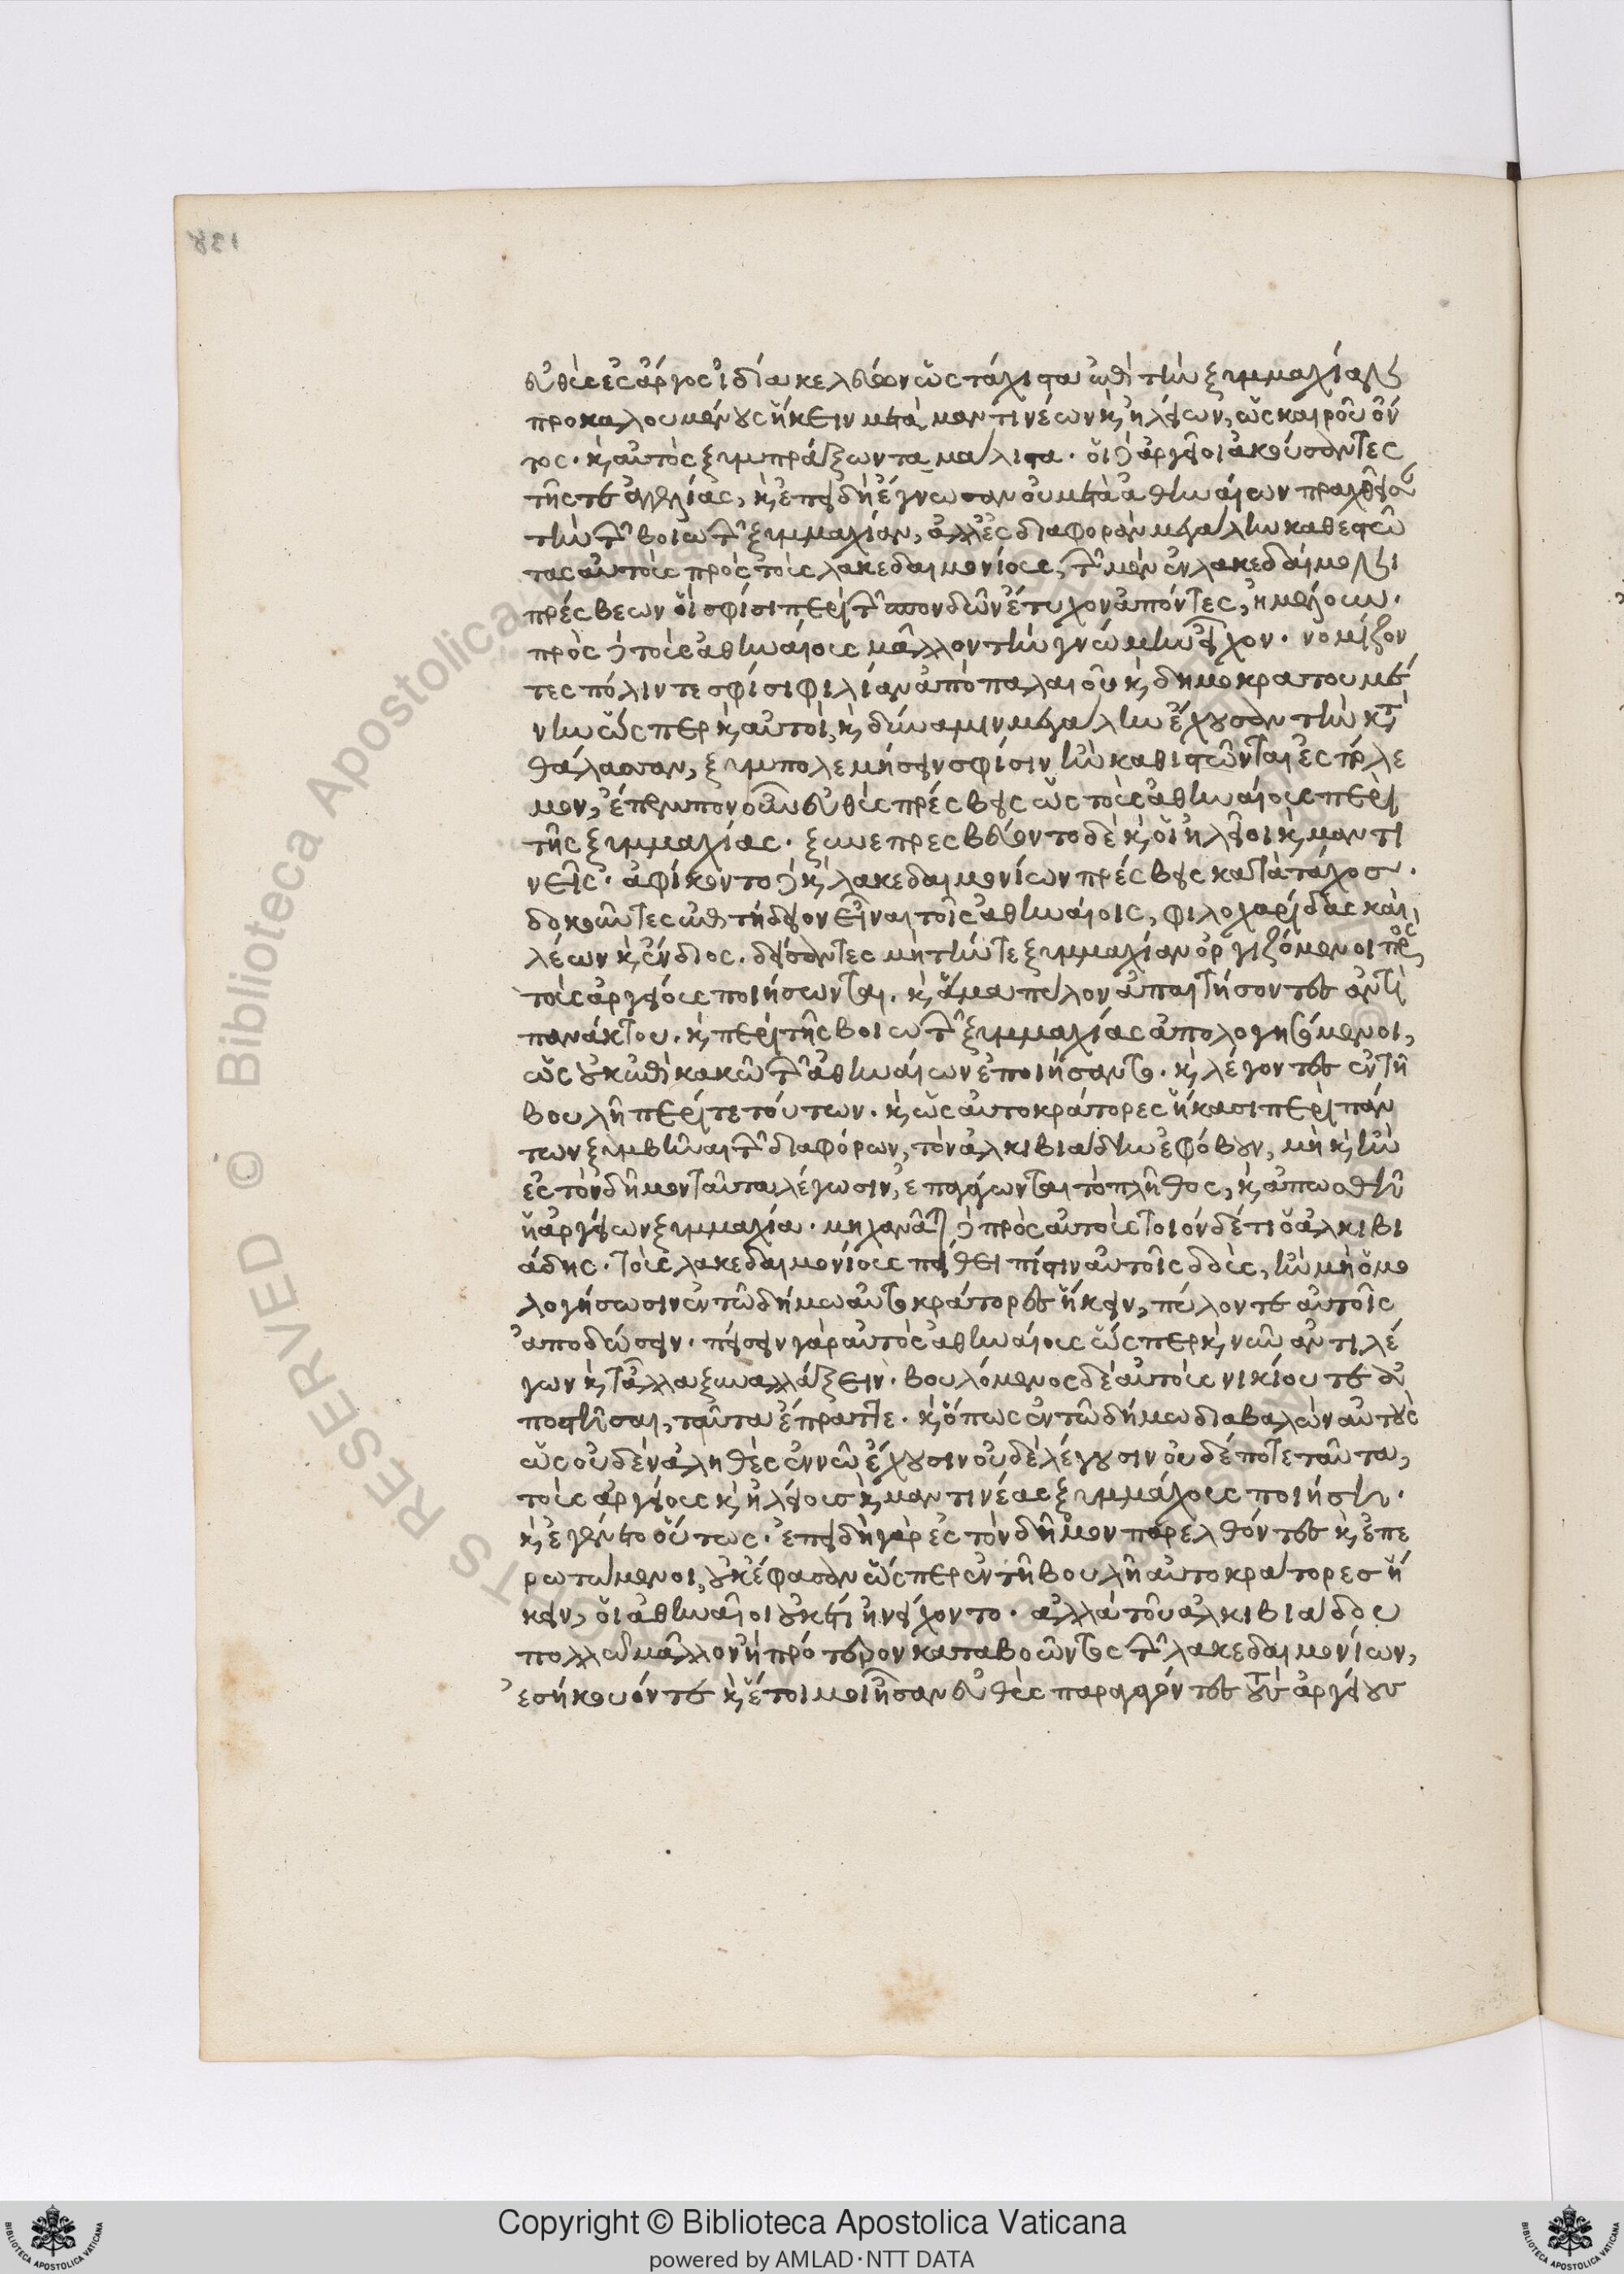 εὐθὺς ἐς ἄργος ἰδία κελεύων ὡς τάχιστα ἐπὶ τὴν ξυμμαχίαν
προκαλουμένους ἥκειν μετὰ μαντινέων καὶ ἠλείων, ὡς καιροῦ ὄν
τος. καὶ αὐτὸς ξυμπράξων τὰ μάλιστα. οἱ δὲ ἀργεῖοι ἀκούσαντες
τῆς τε ἀγγελίας, καὶ ἐπειδὴ ἔγνωσαν οὐ μετὰ ἀθηναίων πραχθεῖσαν
τὴν τῶν βοιωτῶν ξυμμαχίαν, ἀλλ' ἐς διαφορὰν μεγάλην καθεστῶ
τας αὐτοὺς πρὸς τοὺς λακεδαιμονίους, τῶν μὲν ἐν λακεδαίμονι
πρέσβεων οἳ σφίσι περὶ τῶν σπονδῶν ἔτυχον ἀπόντες, ἠμέλουν.
πρὸς δὲ τοὺς ἀθηναίους μᾶλλον τὴν γνώμην εἶχον. νομίζον
τες πόλιν τε σφίσι φιλίαν ἀπὸ παλαιοῦ καὶ δημοκρατουμέ
νην ὥσπερ καὶ αὐτοί, καὶ δύναμιν μεγάλην ἔχουσαν τὴν κατὰ
θάλασσαν, ξυμπολεμήσειν σφίσιν ἢν καθιστῶνται ἐς πόλε
μον, ἔπεμπον οὖν εὐθὺς πρέσβεις ὡς τοὺς ἀθηναίους περὶ
τῆς ξυμμαχίας. ξυνεπρεσβεύοντο δὲ καὶ οἱ ἠλεῖοι καὶ μαντι
νεῖς. ἀφίκοντο δὲ καὶ λακεδαιμονίων πρέσβεις κατὰ τάχος.
δοκοῦντες ἐπιτήδειον εἶναι τοῖς ἀθηναίοις, φιλοχαρίδας καὶ
λέων καὶ ἔνδιος. δείσαντες μὴ τήν τε ξυμμαχίαν ὀργιζόμενοι πρὸς
τοὺς ἀργείους ποιήσωνται. καὶ ἅμα πύλον ἀπαιτήσοντες ἀντὶ
πανάκτου. καὶ περὶ τῆς βοιωτῶν ξυμμαχίας ἀπολογησόμενοι,
ὡς οὐκ ἐπὶ κακῶ τῶν ἀθηναίων ἐποιήσαντο. καὶ λέγοντες ἐν τῆ
βουλῆ περί τε τούτων. καὶ ὡς αὐτοκράτορες ἥκασι περὶ πάν
των ξυμβῆναι τῶν διαφόρων, τὸν ἀλκιβιάδην ἐφόβουν, μὴ καὶ ἢν
ἐς τὸν δῆμον ταῦτα λέγωσιν, ἐπαγάγωνται τὸ πλῆθος, καὶ ἀπωσθῆ
ἡ ἀργείων ξυμμαχία. μηχανᾶται δὲ πρὸς αὐτοὺς τοιόνδέ τι ὁ ἀλκιβι
άδης. τοὺς λακεδαιμονίους πείθει πίστιν αὐτοῖς δοὺς, ἢν μὴ ὁμο
λογήσωσιν ἐν τῶ δήμω αὐτοκράτορες ἥκειν, πύλον τε αὐτοῖς
ἀποδώσειν. πείσειν γὰρ αὐτὸς ἀθηναίους ὥσπερ καὶ νῦν ἀντιλέ
γων καὶ τἄλλα ξυναλλάξειν. βουλόμενος δὲ αὐτοὺς νικίου τε ἀ
ποστῆσαι, ταῦτα ἔπραττε. καὶ ὅπως ἐν τῶ δήμω διαβαλὼν αὐτοὺς
ὡς οὐδὲν ἀληθὲς ἐν νῶ ἔχουσιν οὐδὲ λέγουσιν οὐδέποτε ταῦτα,
τοὺς ἀργείους καὶ ἠλείους καὶ μαντινέας ξυμμάχους ποιήση.
καὶ ἐγένετο οὕτως. ἐπειδὴ γὰρ ἐς τὸν δῆμον παρελθόντες καὶ ἐπε
ρωτώμενοι, οὐκ ἔφασαν ὥσπερ ἐν τῆ βουλῆ αὐτοκράτορες ἥ
κειν, οἱ ἀθηναῖοι οὐκέτι ἠνείχοντο. ἀλλὰ τοῦ ἀλκιβιάδου
πολλῶ μᾶλλον ἢ πρότερον καταβοῶντος τῶν λακεδαιμονίων,
ἐσήκουόν τε καὶ ἕτοιμοι ἦσαν εὐθὺς παραγαγόντες τοὺς ἀργείους